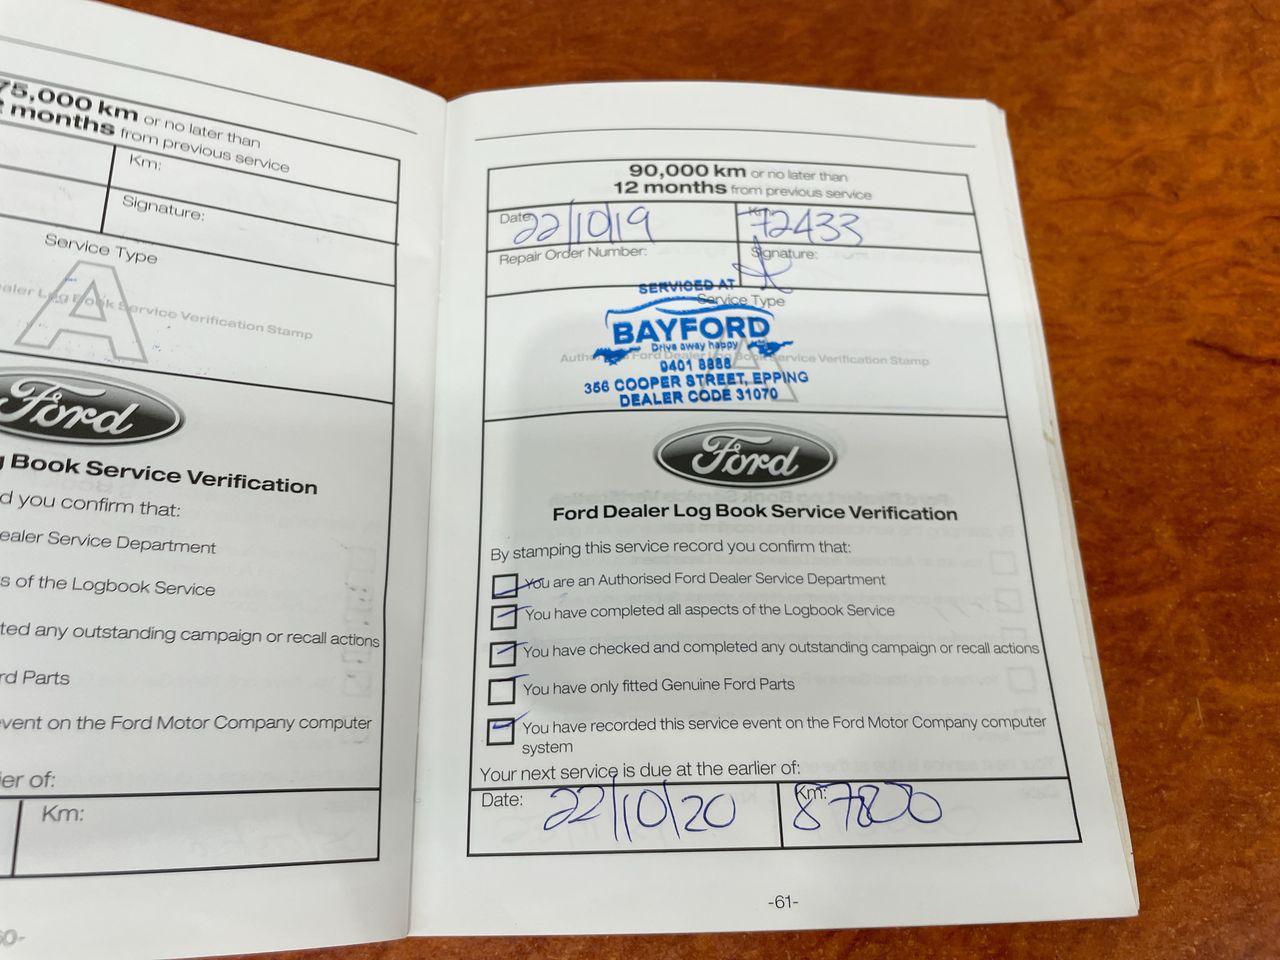 75,000 km or no later than
months from previous service
Km:
Signature:
Service Type
A
ealer Log Book Service Verification Stamp
Ford
Book Service Verification
d you confirm that:
ealer Service Department
s of the Logbook Service
ted any outstanding campaign or recall actions
rd Parts
event on the Ford Motor Company computer
ier of:
Km:
90,000 km or no later than
12 months from previous service
Date: 22/10/19
Km: 72433
Repair Order Number:
Signature:
SERVICED AT
Service Type
BAYFORD
Drive away happy
A
Authorised Ford Dealer Log Book Service Verification Stamp
9401 8888
356 COOPER STREET, EPPING
DEALER CODE 31070
Ford
Ford Dealer Log Book Service Verification
By stamping this service record you confirm that:
You are an Authorised Ford Dealer Service Department
You have completed all aspects of the Logbook Service
You have checked and completed any outstanding campaign or recall actions
You have only fitted Genuine Ford Parts
You have recorded this service event on the Ford Motor Company computer
system
Your next service is due at the earlier of:
Date: 22/10/20
Km:
-61-